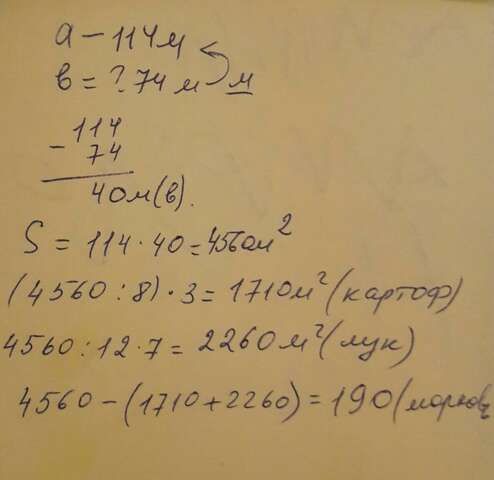 a - 114м
в = ? 74 м м
- 114
74
40м(в).
S = 114 · 40 = 4560м²
(4560 : 8) · 3 = 1710м² (картоф)
4560 : 12 · 7 = 2260м² (лук)
4560 - (1710 + 2260) = 190 (морковь